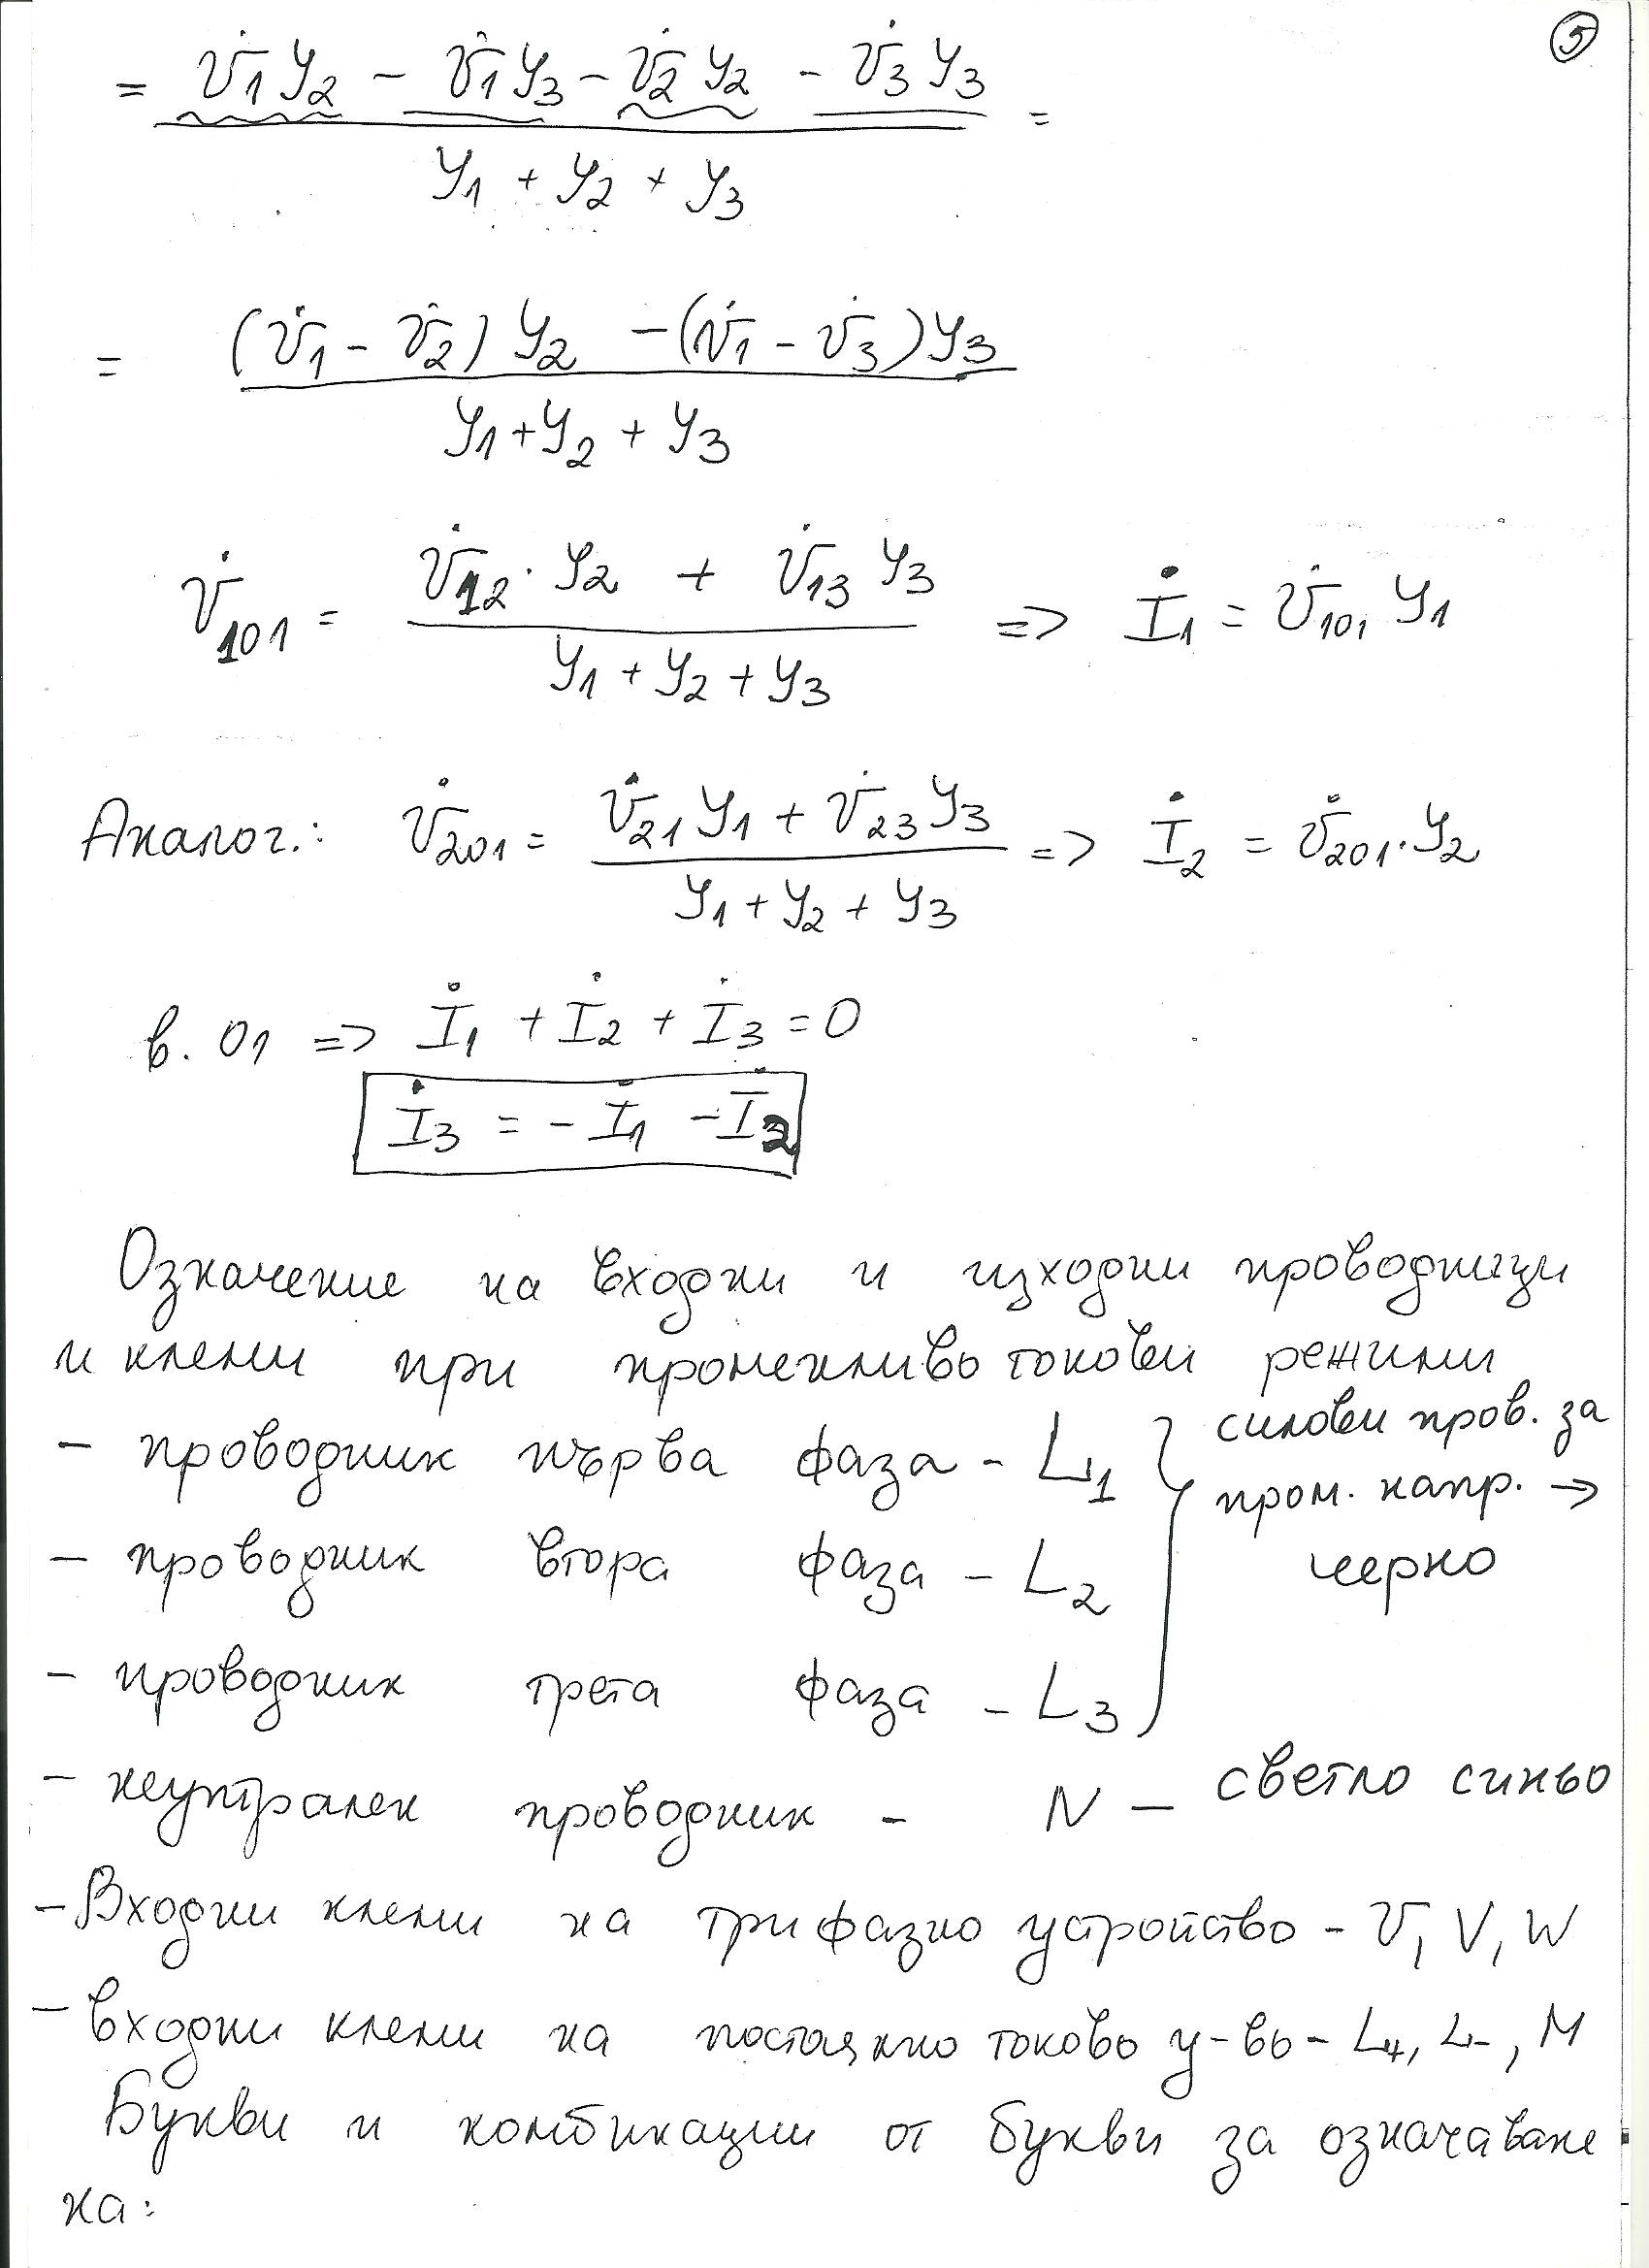 5
= U̇1 Y2 - U̇1 Y3 - U̇2 Y2 - U̇3 Y3 =
Y1 + Y2 + Y3
= (U̇1 - U̇2) Y2 - (U̇1 - U̇3) Y3
Y1 + Y2 + Y3
U̇101 = U̇12 · Y2 + U̇13 Y3 => İ1 = U̇101 Y1
Y1 + Y2 + Y3
Аналог.: U̇201 = U̇21 Y1 + U̇23 Y3 => İ2 = U̇201 · Y2
Y1 + Y2 + Y3
в. 01 => İ1 + İ2 + İ3 = 0
İ3 = - İ1 - İ2
Означение на входни и изходни проводници
и клеми при променливо токови режими
- проводник първа фаза - L1
силови пров. за
пром. напр. ->
черно
- проводник втора фаза - L2
- проводник трета фаза - L3
- неутрален проводник - N - светло синьо
- Входни клеми на трифазно устройство - U, V, W
- входни клеми на постоянно токово у-во - L+, L-, M
Букви и комбинации от букви за означаване
на: